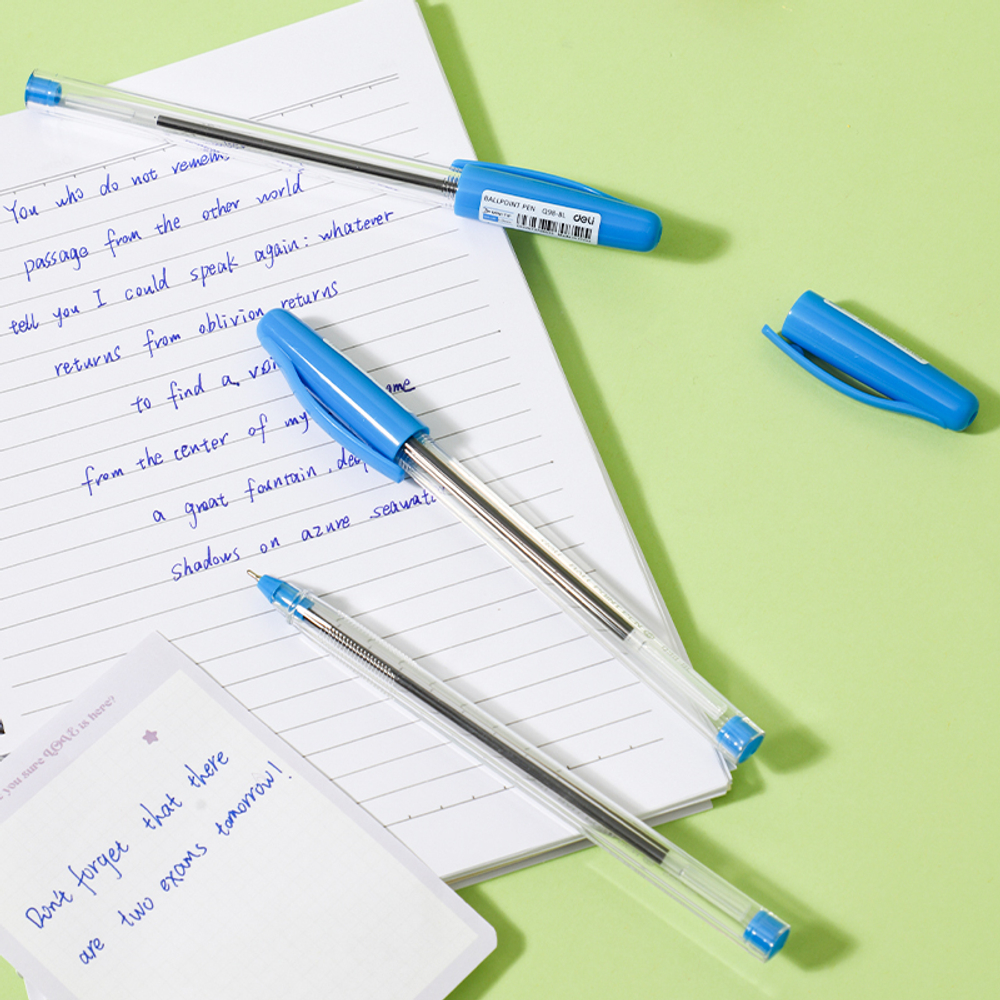 You who do not
passage from the other world
tell you I could speak again: whatever
returns from oblivion returns
to find a
from the center of my
a great fountain,
shadows on azure
BALLPOINT PEN Q9B-BL deli
you sure LOVE is here?
Don't forget that there
are two exams tomorrow!